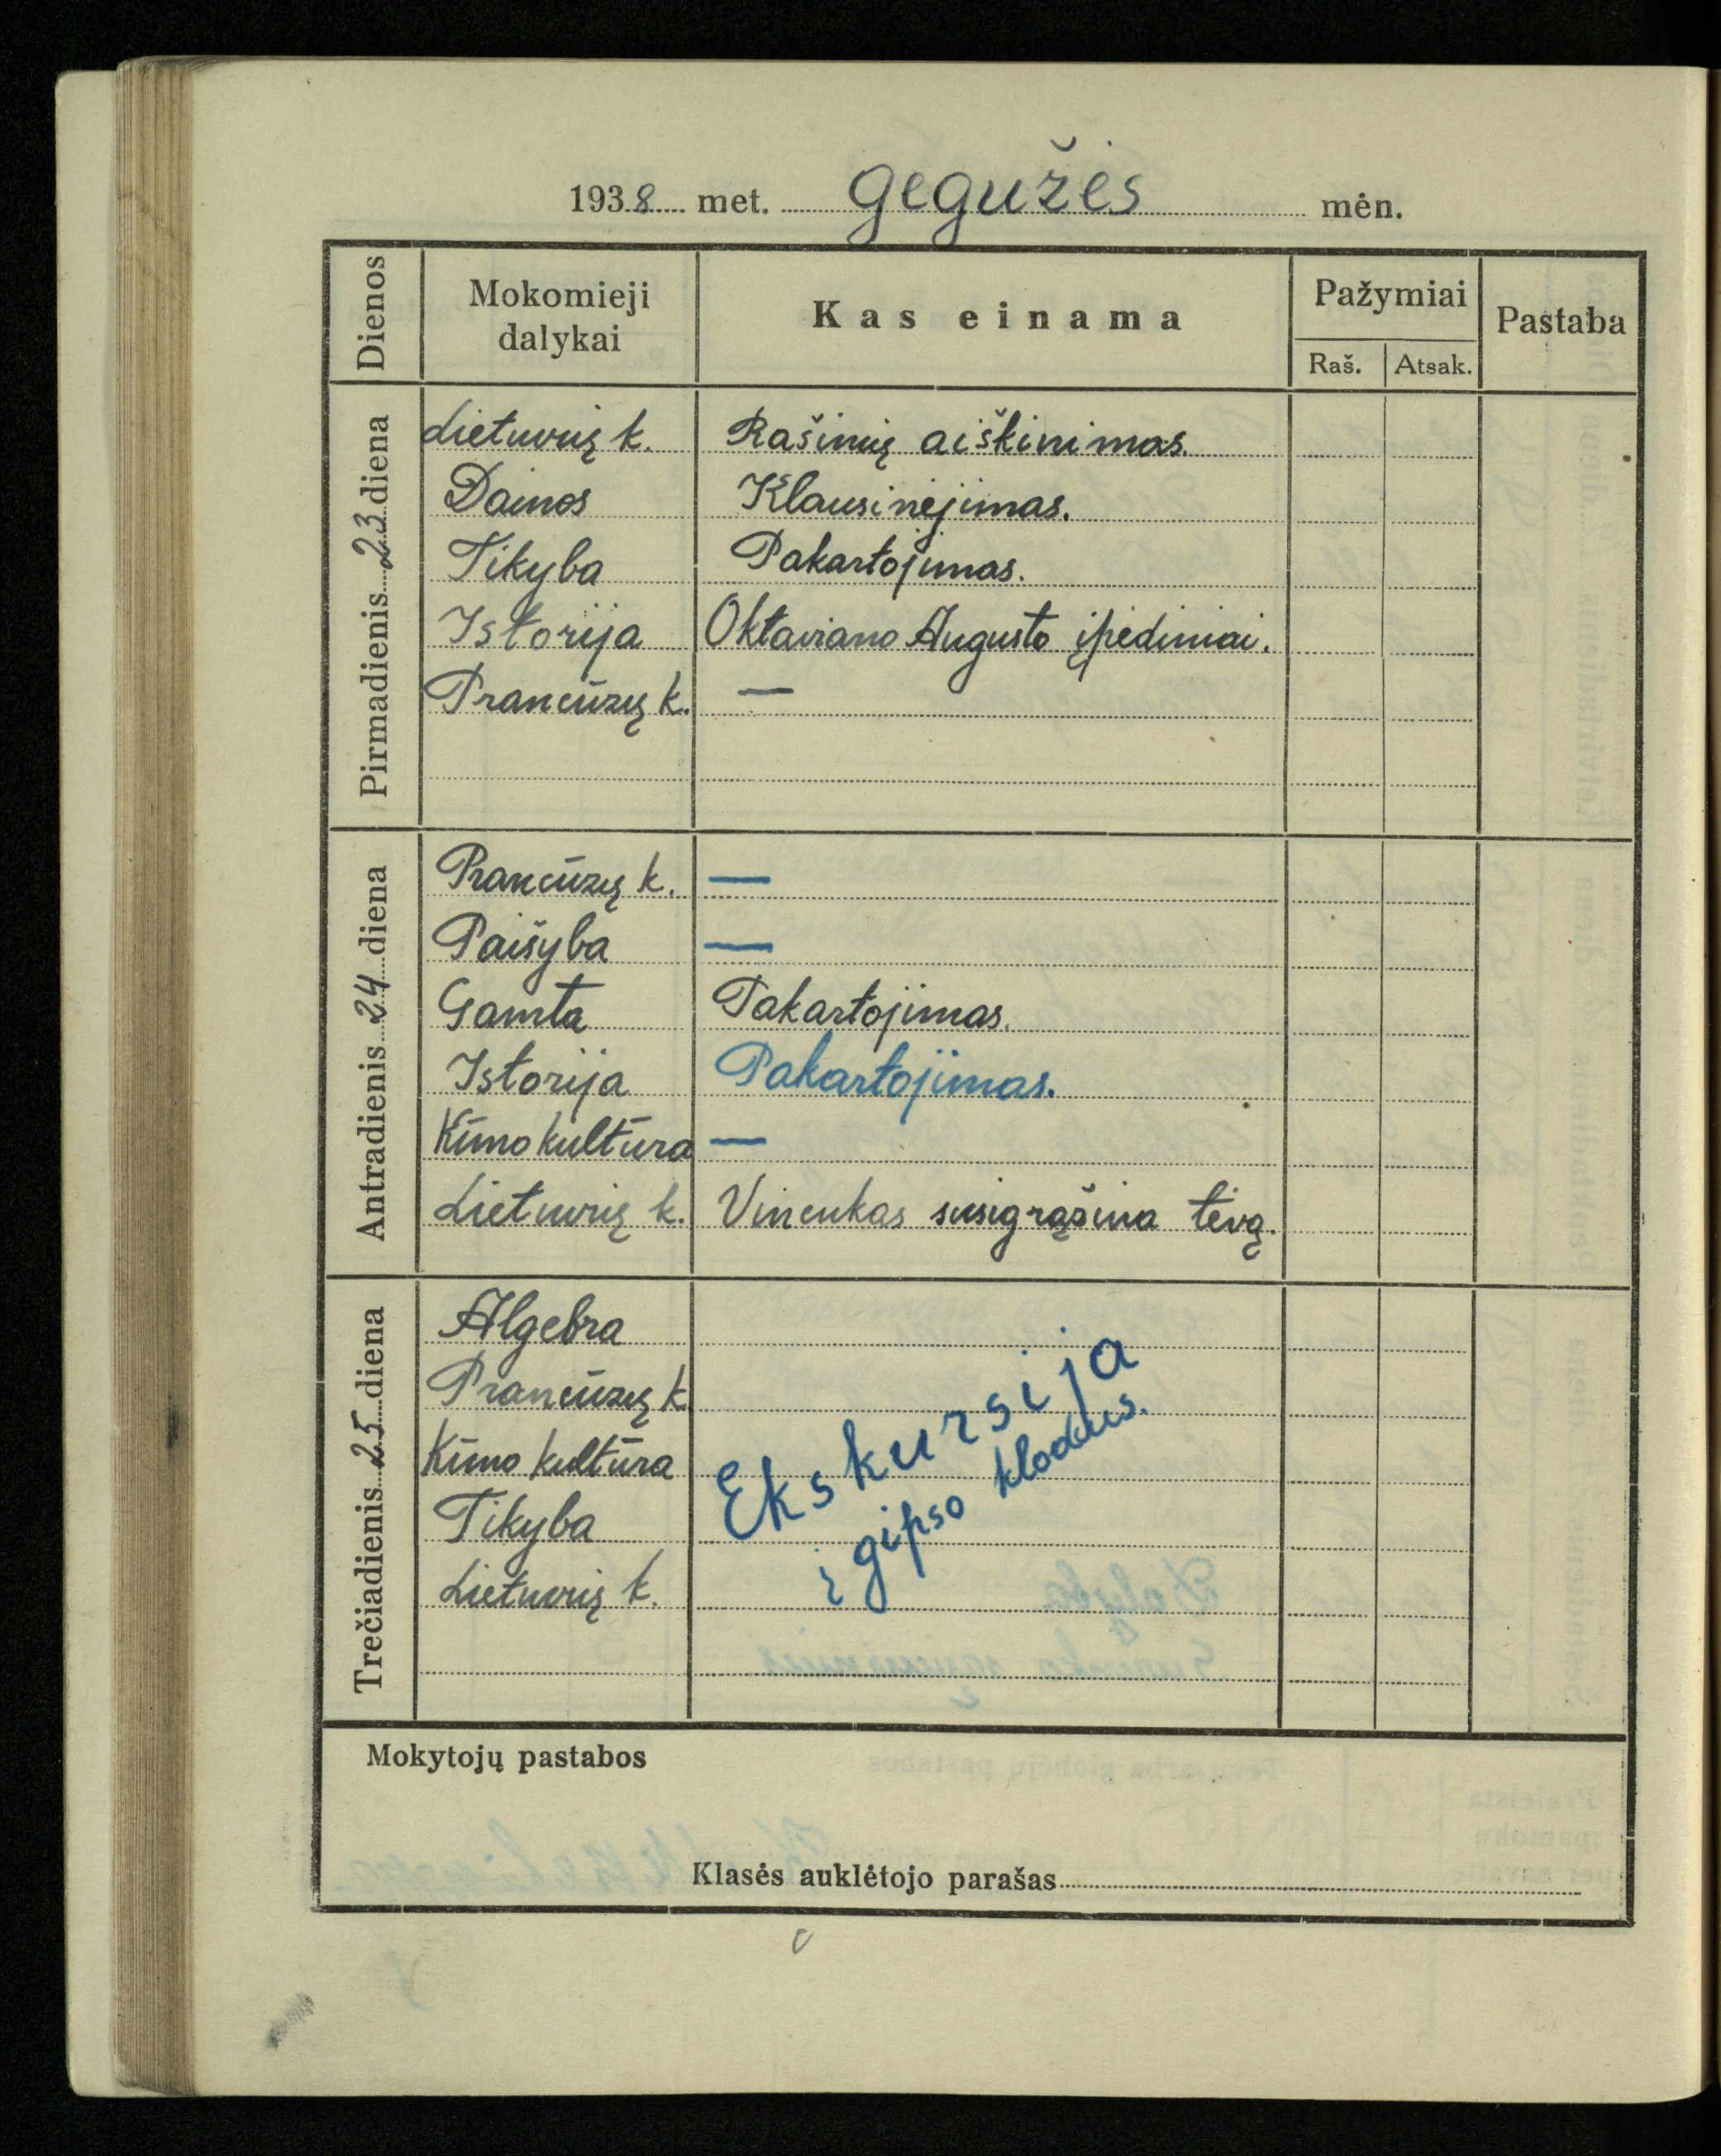 1938 met. gegužės mėn.
Dienos
Mokomieji dalykai
Kas einama
Pažymiai
Raš. Atsak.
Pastaba
Pirmadienis 23 diena
Lietuvių k. Rašinių aiškinimas.
Dainos Klausinėjimas.
Tikyba Pakartojimas.
Istorija Oktaviano Augusto įpėdiniai.
Prancūzų k. —
Antradienis 24 diena
Prancūzų k. —
Paišyba —
Gamta Pakartojimas.
Istorija Pakartojimas.
Kūno kultūra —
Lietuvių k. Vincukas susigrąžina tėvą.
Trečiadienis 25 diena
Algebra
Prancūzų k
Kūno kultūra
Tikyba
Lietuvių k.
Ekskursija
į gipso klodus.
Mokytojų pastabos
Klasės auklėtojo parašas